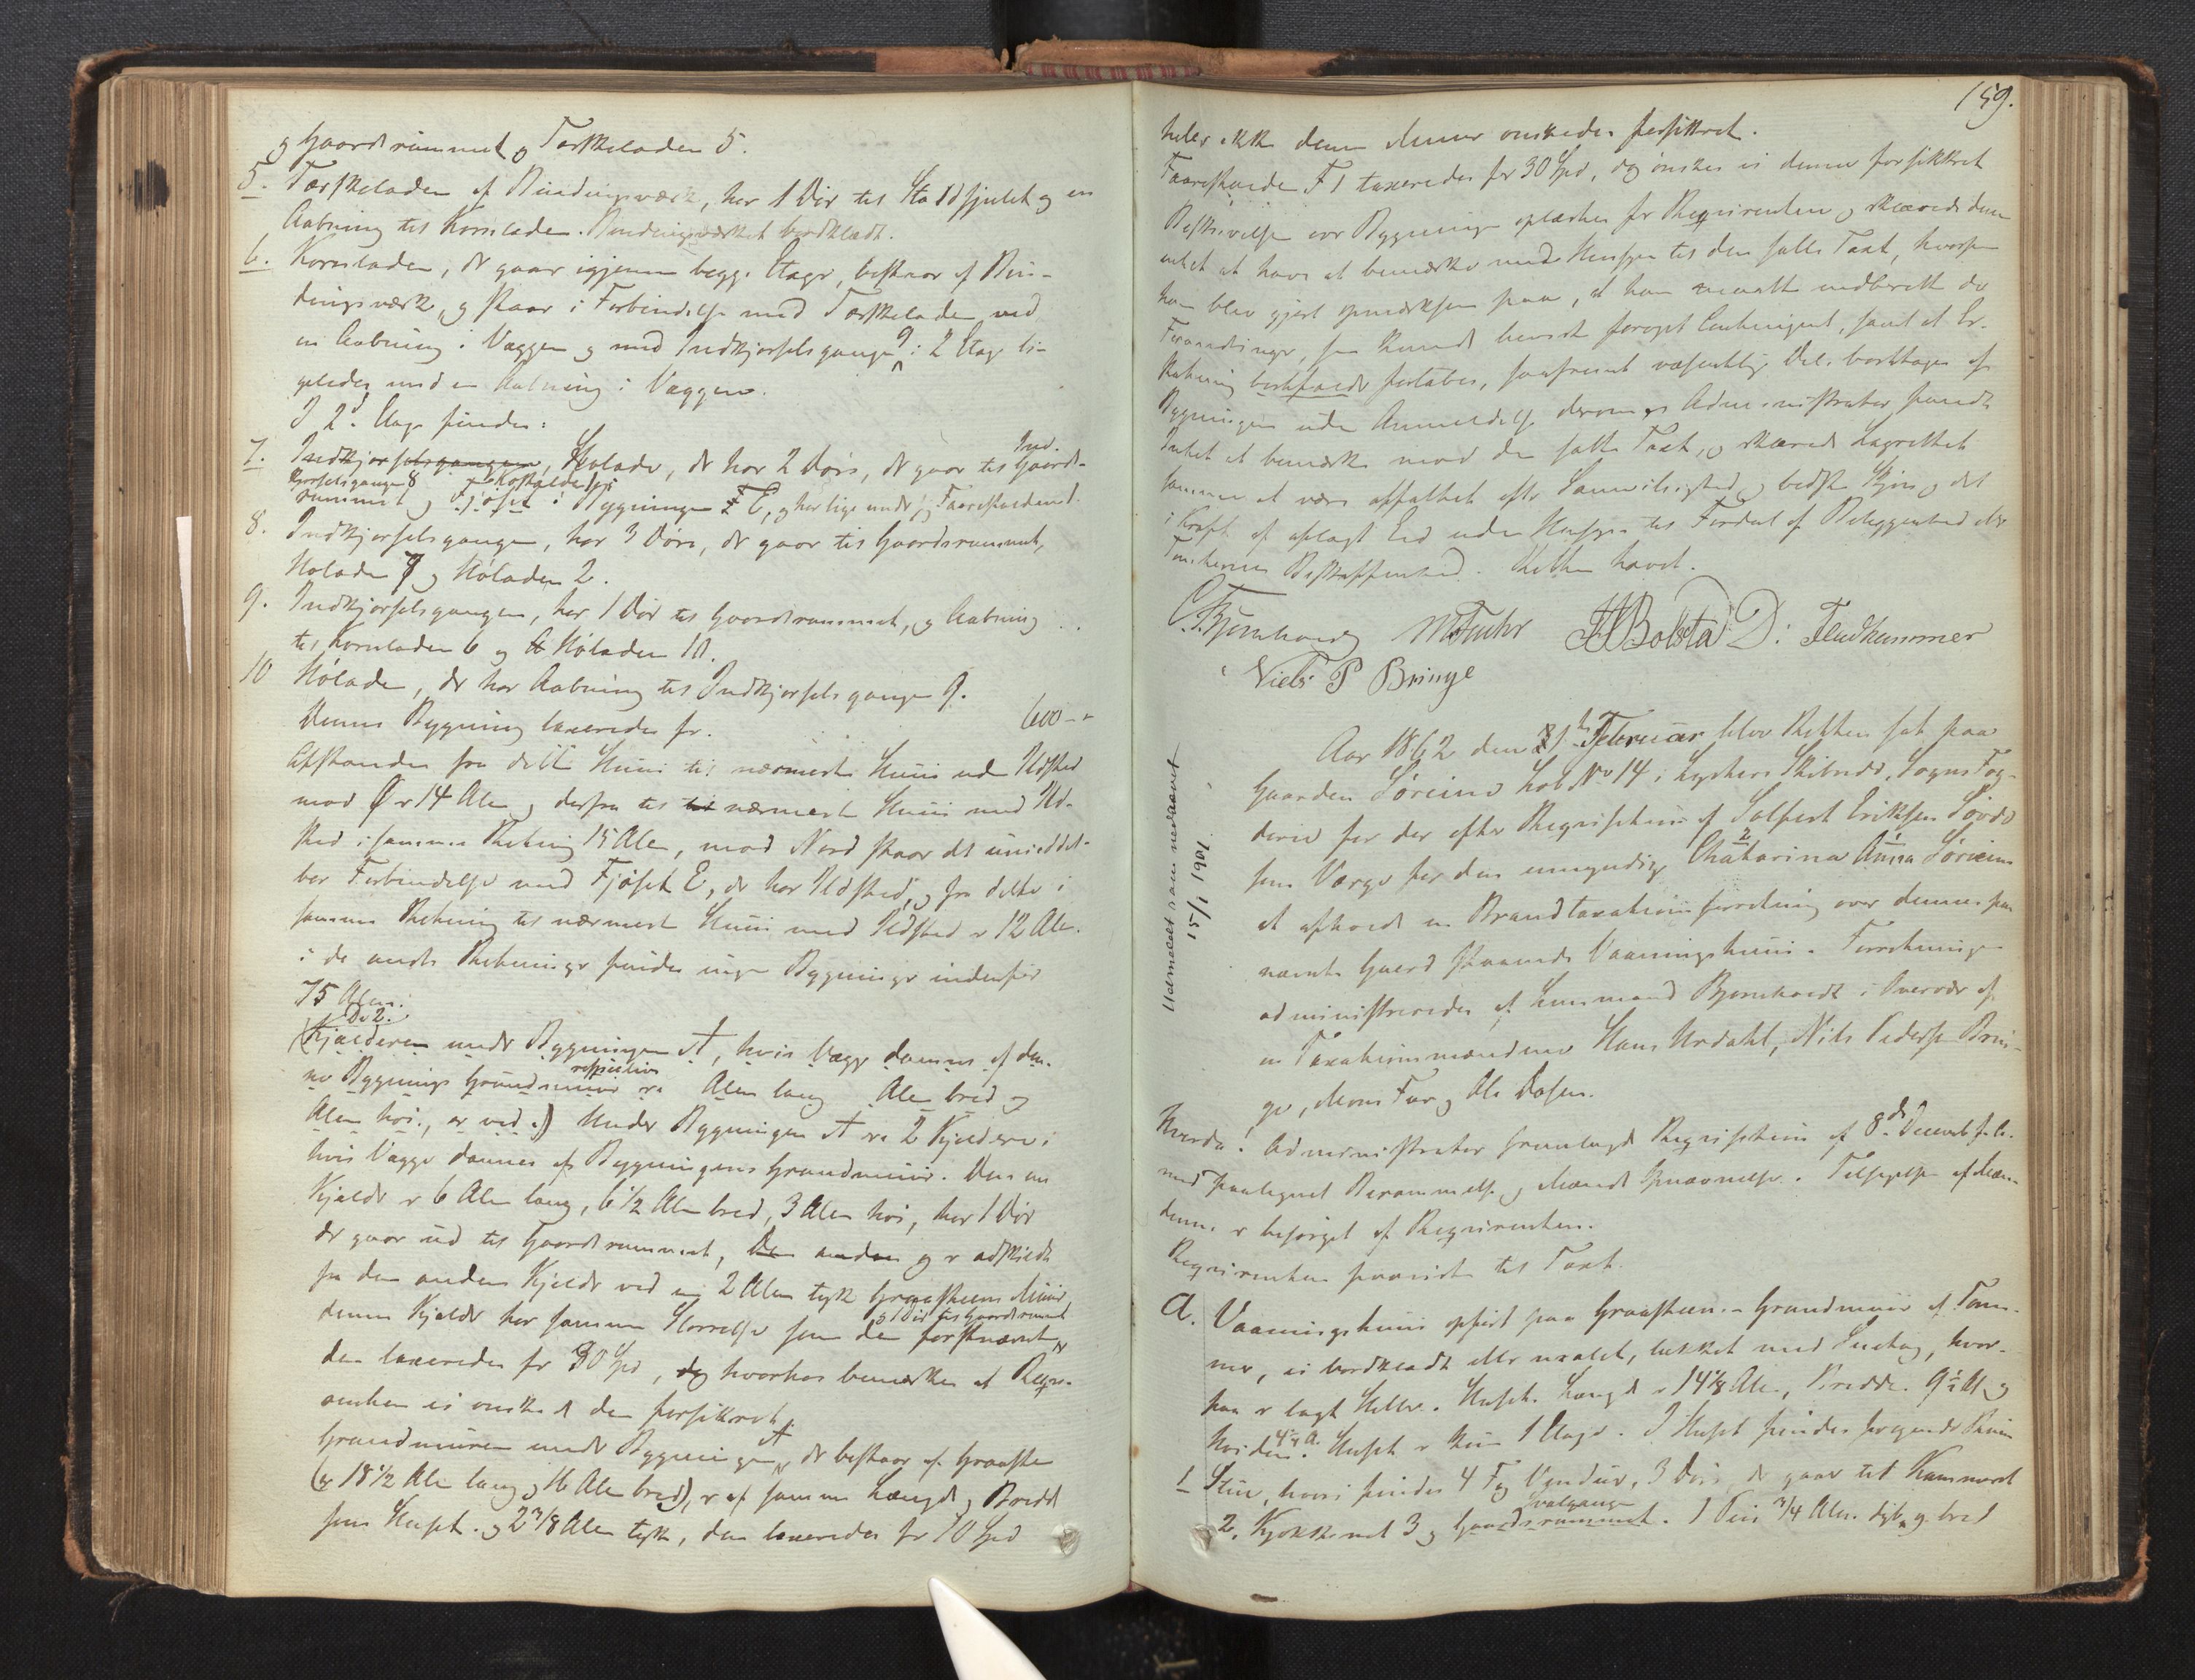 og Gaardsrummet og Tærskeladen 5.
5. Tærskeladen af Bindingsværk, har 1 Dør til Staldfjulet og en
Aabning til Kornladen. Bindingsværket bordklædt.
6. Kornladen, der gaar igjennem begge Etager, bestaar af Bin-
dingsværk, og staar i Forbindelse med Tærskeladen ved
en Aabning i Væggen og med Indkjørselsgangen 9 i 2 Etage li-
geledes med en Aabning i Væggen.
I 2d Etage findes:
7. Indkjørselsgangen, Høladen, der har 2 Døre, der gaar til Gaards- Ind-
kjørselsgangen 8
rummet og Fjøset i Bygningen E, og har lige under sig Faarestuen
8. Indkjørselsgangen, har 3 Døre, der gaar til Gaardsrummet,
Høladen 7 og Høladen 2.
9. Indkjørselsgangen, har 1 Dør til Gaardsrummet, og Aabning
til Kornladen 6 og Høladen 10.
10 Hølade, der har Aabning til Indkjørselsgangen 9.
Denne Bygning taxeredes for 600 -
Afstanden fra dette Huus til nærmeste Huus uden Ildsted
mod Ø er 14 Alen og derfra til nærmeste Huus med Ild-
sted i samme Retning 15 Alen, mod Nord staar det i umiddel-
bar Forbindelse med Fjøset E, der har Ildsted, og fra dette i
samme Retning til nærmeste Huus med Ildsted er 12 Alen.
i de andre Retninger findes ingen Bygninger indenfor
75 Alen.
De 2.
(Kjælderen under Bygningen A, hvis Vægge dannes af den-
ne Bygnings Grundmuur er respective Alen lang Alen bred og
Alen høi, er ved.) Under Bygningen A er 2 Kjældere,
hvis Vægge dannes af Bygningens Grundmuur. Den ene
Kjælder er 6 Alen lang, 6 1/2 Alen bred, 3 Alen høi, har 1 Dør
der gaar ud til Gaardsrummet, Den anden og er adskildt
fra den anden Kjælder ved en 2 Alen tyk Graasteens Muur,
denne Kjælder har samme Størrelse som den førstnævnte og 1 Dør til Gaardsrummet
den taxeredes for 30 Spd, og hvorhos bemærkes at Reqvi-
renten ei ønskede den forsikret.
Grundmuren under Bygningen A, der bestaar af Graasteen
(er 18 1/2 Alen lang og 16 Alen bred), er af samme Længde og Bredde
som Huset og 2 7/8 Alen tyk, den taxeredes for 70 Spd
159.
heller ikke denne Muur ønskedes forsikret.
Faarestuen F 1 taxeredes for 30 Spd, og ønskes ei denne forsikret
Beskrivelsen over Bygningen oplæstes for Reqvirenten og erklærede denne
intet at have at bemærke med Hensyn til den satte Taxt, hvorpaa
han blev gjort opmærksom paa, at han maatte indberette de
Forandringer, som kunde bevirke forøget Contingent, samt at Er-
statning bortfaldt fortabes, saafremt væsentlige Dele borttages af
Bygningen uden Anmeldelse derom og Administrator fandt
Intet at bemærke mod den satte Taxt, og erklærede Lagrettet
samme at være affattet efter Samvittighed og bedste Skjøn og det
i Kraft af aflagt Eed uden Hensyn til Fordeel af Beliggenhed eller
Tomternes Beskaffenhed. Retten hævet.
C. Bjørnhardt M. Fuhr HBolsta D: Fludkammer
Niels P Bringe
Aar 1862 den 21de Februar blev Retten sat paa
Gaarden Søreim Løb No 14 i Lysters Skibrede, Sogns Fog-
derie for der efter Reqvisition af Solfest Eriksen Løvde
som Værge for den umyndige Chatarina 2 Anna 1 Søreim
at afholde en Brandtaxationsforretning over dennes paa
nævnte Gaard staaende Vaaningshuus. Forretningen
administreredes af Lensmand Bjørnhardt i Overvær af
en Taxationsmændene Hans Urdahl, Nils Pedersen Brin-
ge, Mons Fur og Ole Dosen.
Hvorda! Administrator fremlagde Reqvisition af 8de Decemb. f. A.
med paategnet Berammelse og Mænds Opnævnelse. Tilsigelse af Mæn-
dene er besørget af Reqvirenten.
Reqvirenten paaviste til Taxt.
A. Vaaningshuus opført paa Graasteens Grundmuur af Tøm-
mer, ei bordklædt eller malet, tækket med Sutag, hvor-
paa er lagt Heller. Husets Længde er 14 1/8 Alen, Bredde 9 1/2 Al. og
Høiden 4 1/4 A. Huset er kun 1 Etage. I Huset findes følgende Rum
1 Stue, hvori findes 4 Fag Vinduer, 3 Døre, der gaar til Kammeret
2, Kjøkkenet 3 og Gaardsrummet Svalgangen. 1 Ovn 3/4 Alen dyb og bred
Udmeldt som nedrevet
15/1 1901